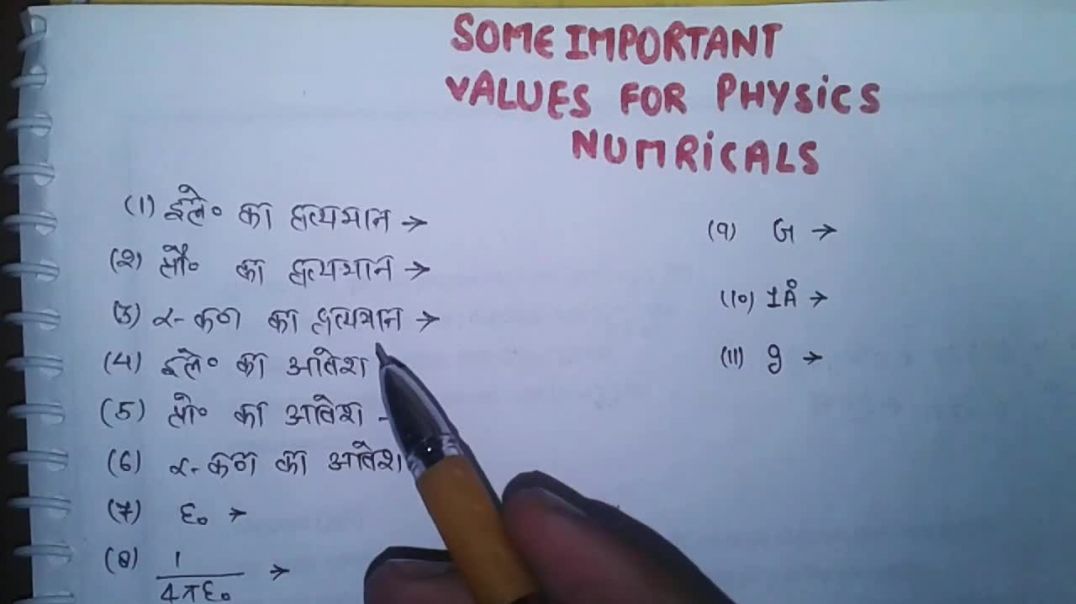 SOME IMPORTANT
VALUES FOR PHYSICS
NUMRICALS
(1) इले० का द्रव्यमान →
(2) प्रो० का द्रव्यमान →
(3) α- कण का द्रव्यमान →
(4) इले० का आवेश
(5) प्रो० का आवेश -
(6) α- कण का आवेश
(7) ε₀ →
(8) 1/4πε₀ →
(9) G →
(10) 1Å →
(11) g →